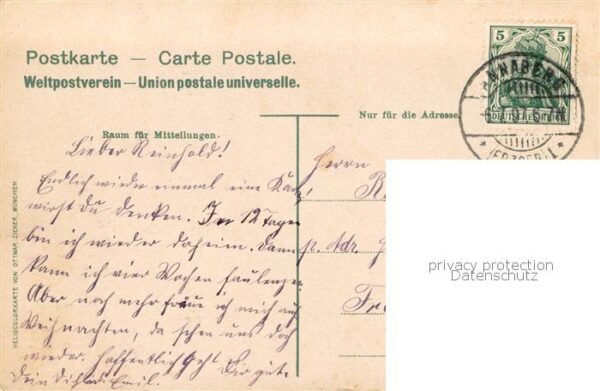 Postkarte — Carte Postale.
Weltpostverein — Union postale universelle.
5 5
DEUTSCHES REICH
ANNABERG
(ERZGEB.) 1
Nur für die Adresse.
Raum für Mitteilungen.
Lieber Reinhold!
Endlich wieder einmal eine Karte,
wirst Du denken. In 12 Tagen
bin ich wieder daheim. Dann
kann ich vier Wochen faulenzen
Aber noch mehr freue ich mich auf
Weihnachten, da sehen uns doch
wieder. Hoffentlich geht Dir gut.
Dein Emil.
Herrn
p. Adr.
HELIOCOLORKARTE VON OTTMAR ZIEHER, MÜNCHEN
privacy protection
Datenschutz